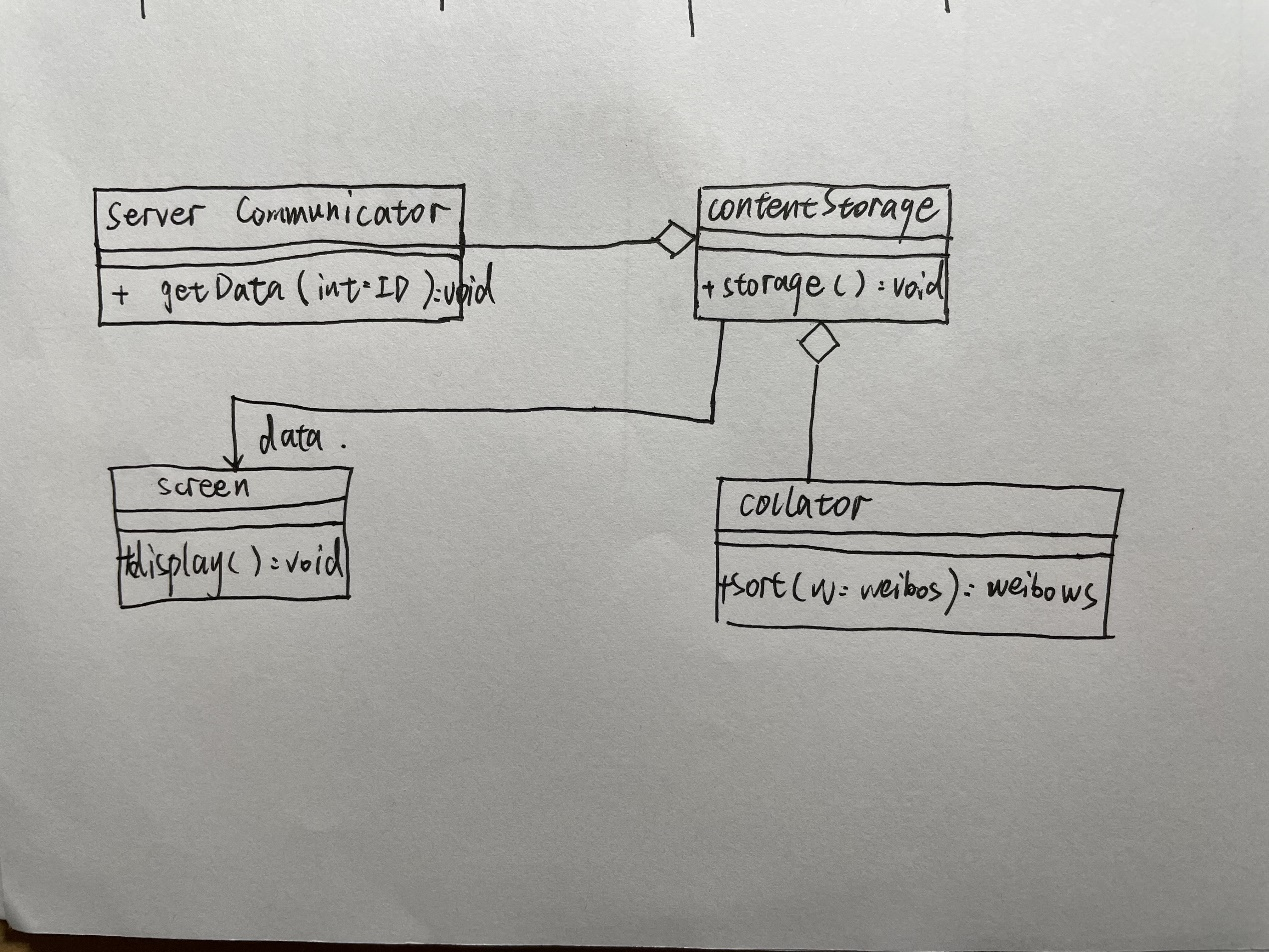 Server Communicator
+ getData (int=ID):void
contentStorage
+storage():void
data.
screen
+display():void
collator
+sort(w: weibos): weibows